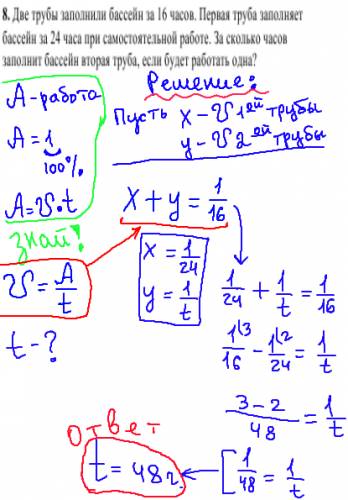 8. Две трубы заполнили бассейн за 16 часов. Первая труба заполняет
бассейн за 24 часа при самостоятельной работе. За сколько часов
заполнит бассейн вторая труба, если будет работать одна?
Решение:
A - работа
A = 1
100%
A = V·t
знай!
V = A/t
t - ?
Пусть x - V 1ой трубы
y - V 2ой трубы
x + y = 1/16
x = 1/24
y = 1/t
1/24 + 1/t = 1/16
1\3/16 - 1\2/24 = 1/t
3-2/48 = 1/t
1/48 = 1/t
Ответ
t = 48 ч.